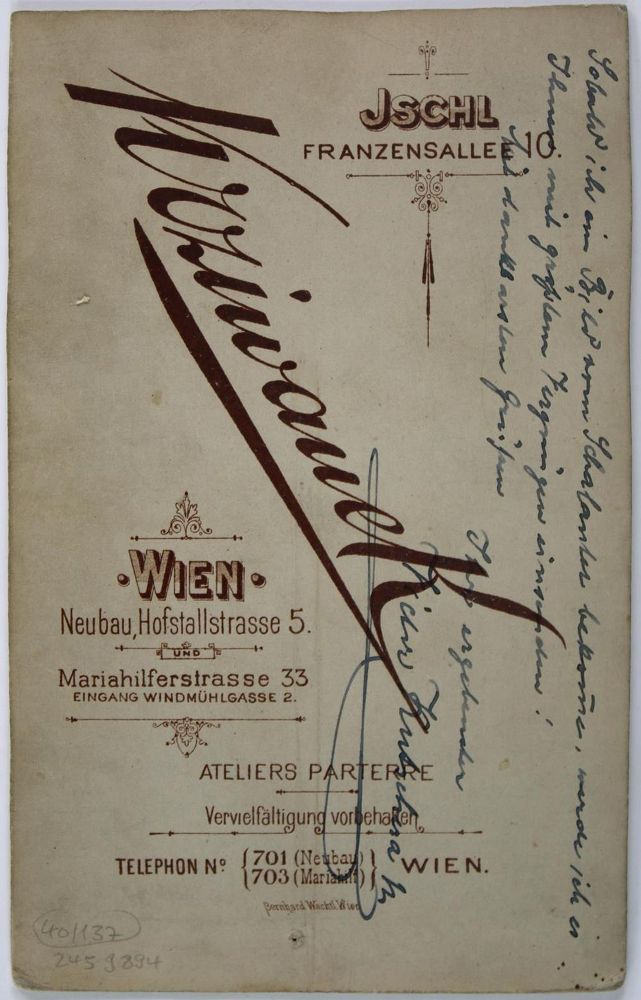 JSCHL
FRANZENSALLEE 10.
Wozniwanek
WIEN
Neubau, Hofstallstrasse 5.
UND
Mariahilferstrasse 33
EINGANG WINDMÜHLGASSE 2.
ATELIERS PARTERRE
Vervielfältigung vorbehalten
TELEPHON No. {701 (Neubau)
703 (Mariahilf)} WIEN.
Bernhard Wachtl, Wien
Sobald ich ein Bild vom Schalanter bekome, werde ich es
Ihnen mit größtem Vergnügen einsenden!
Mit dankbarsten Grüßen
Ihr ergebender
Victor Kutschera
40/137
2459894